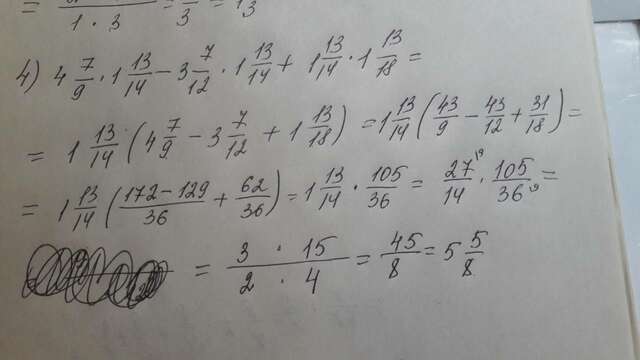 = 1 · 3 = /3 = 1 3
4) 4 7/9 · 1 13/14 - 3 7/12 · 1 13/14 + 1 13/14 · 1 13/18 =
= 1 13/14 (4 7/9 - 3 7/12 + 1 13/18) = 1 13/14 (43/9 - 43/12 + 31/18) =
= 1 13/14 (172 - 129/36 + 62/36) = 1 13/14 · 105/36 = 27/14 · 105/36 =
= 3 · 15/2 · 4 = 45/8 = 5 5/8